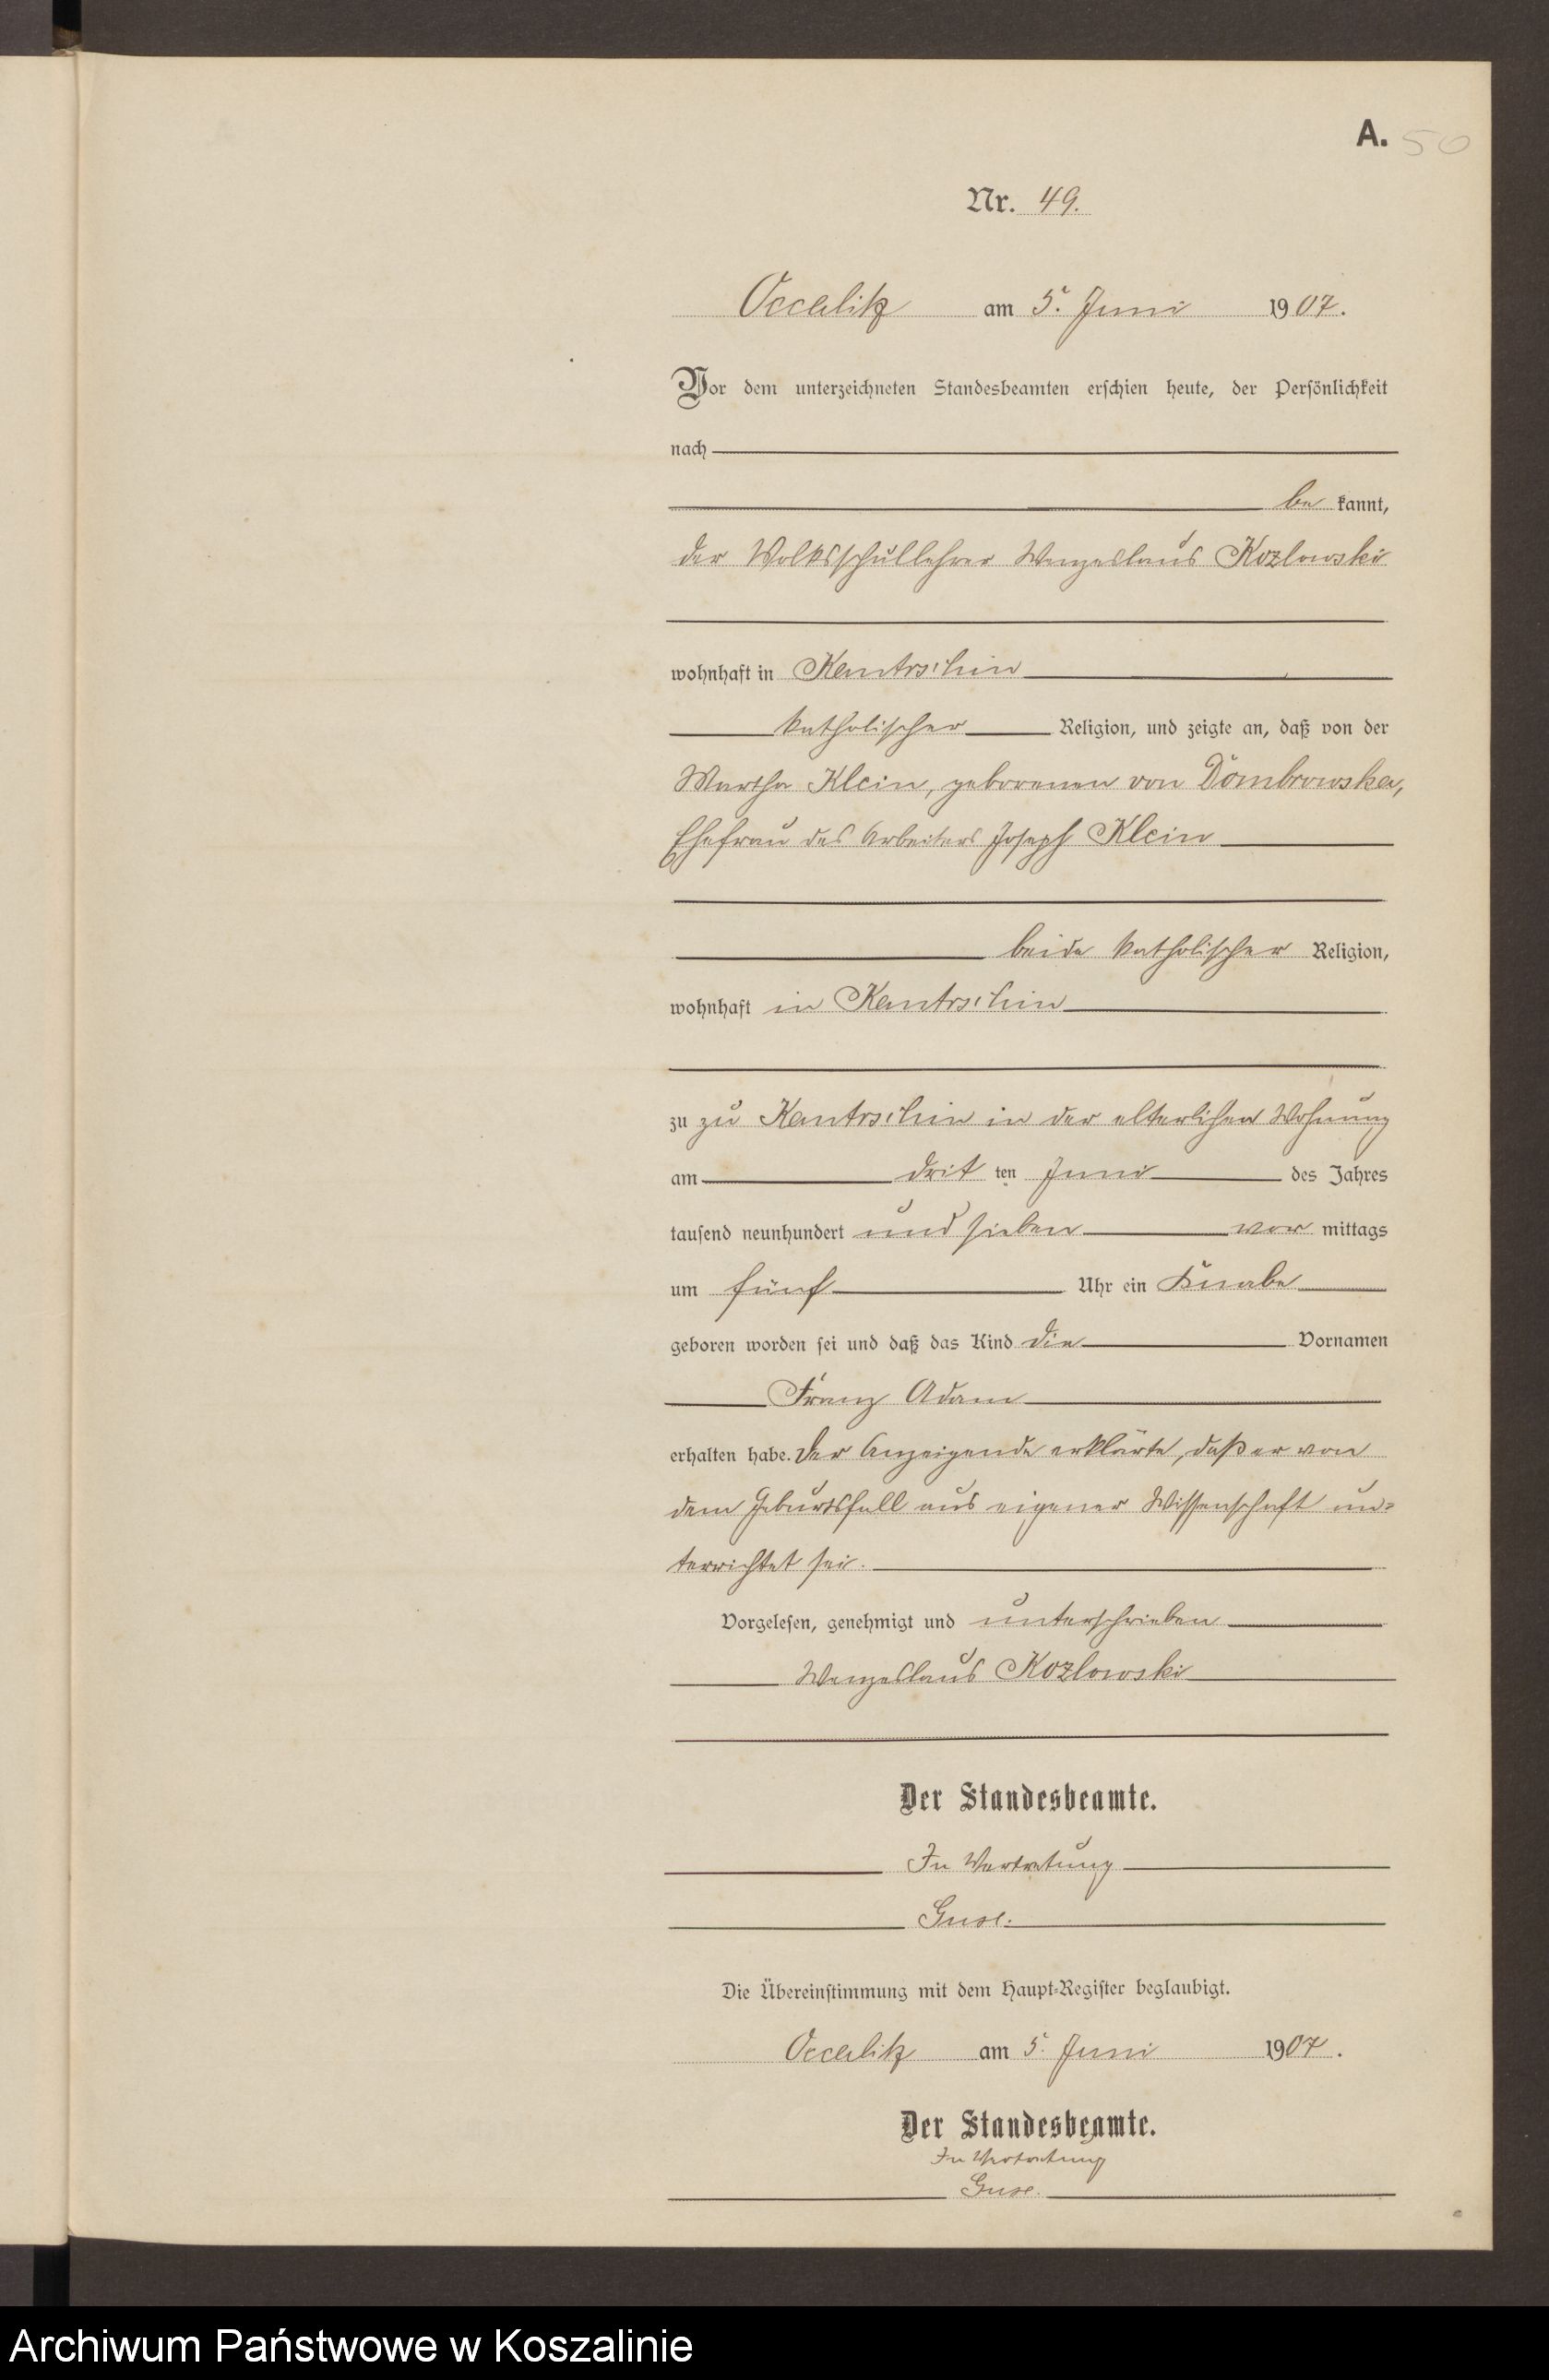 A. 50
Nr. 49.
Occalitz am 5. Juni 1907.
Vor dem unterzeichneten Standesbeamten erschien heute, der Persönlichkeit
nach
be kannt,
der Volksschullehrer Wenzeslaus Kozlowski
wohnhaft in Kantrschin
katholischer Religion, und zeigte an, daß von der
Martha Klein, geborenen von Dombrowska,
Ehefrau des Arbeiters Joseph Klein
beide katholischer Religion,
wohnhaft in Kantrschin
zu zu Kantrschin in der elterlichen Wohnung
am drit ten Juni des Jahres
tausend neunhundert und sieben vor mittags
um fünf Uhr ein Knabe
geboren worden sei und daß das Kind die Vornamen
Franz Adam
erhalten habe. Der Anzeigende erklärte, daß er von
dem Geburtsfall aus eigener Wissenschaft un=
terrichtet sei.
Vorgelesen, genehmigt und unterschrieben
Wenzeslaus Kozlowski
Der Standesbeamte.
In Vertretung
Guse.
Die Übereinstimmung mit dem Haupt-Register beglaubigt.
Occalitz am 5. Juni 1907.
Der Standesbeamte.
In Vertretung
Guse.
Archiwum Państwowe w Koszalinie